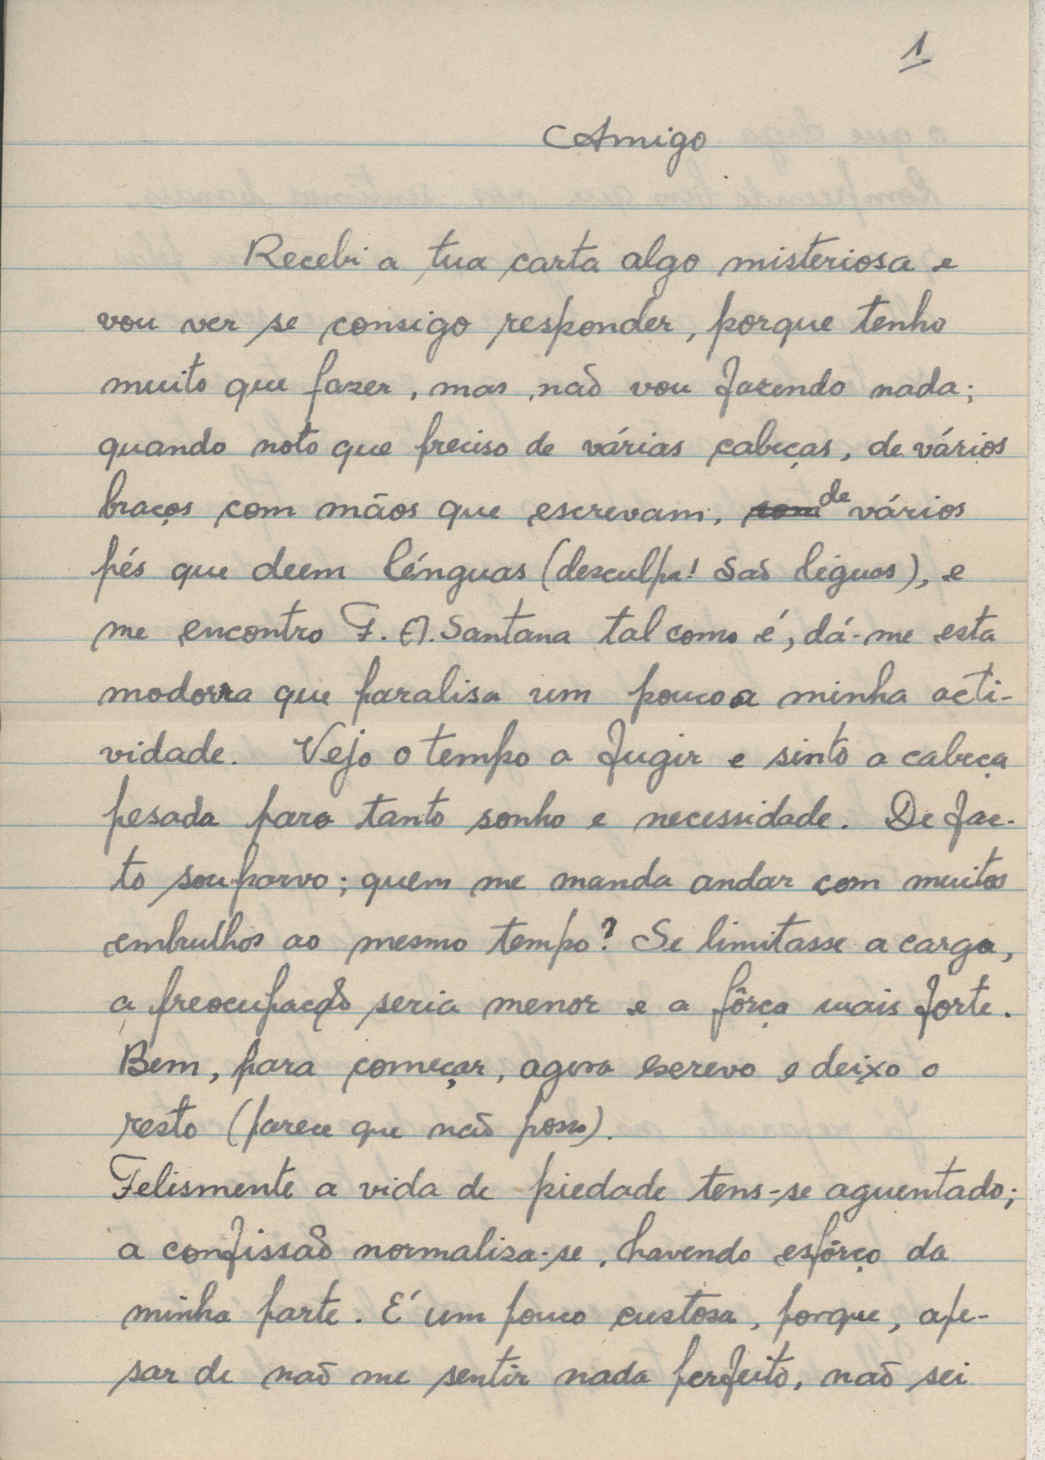 1
Amigo
Recebi a tua carta algo misteriosa e
vou ver se consigo responder, porque tenho
muito que fazer, mas não vou fazendo nada;
quando noto que preciso de várias cabeças, de vários
braços com mãos que escrevam, com de vários
pés que deem lénguas (desculpa! São léguas), e
me encontro F. A. Santana tal como é, dá-me esta
modorra que paralisa um pouco a minha acti-
vidade. Vejo o tempo a fugir e sinto a cabeça
pesada para tanto sonho e necessidade. De fac-
to sou parvo; quem me manda andar com muitos
embrulhos ao mesmo tempo? Se limitasse a carga,
a preocupação seria menor e a fôrça mais forte.
Bem, para começar, agora escrevo e deixo o
resto (parece que não posso).
Felismente a vida de piedade tens-se aguentado;
a confissão normaliza-se, havendo esfôrço da
minha parte. É um pouco custosa, porque, ape-
sar de não me sentir nada perfeito, não sei